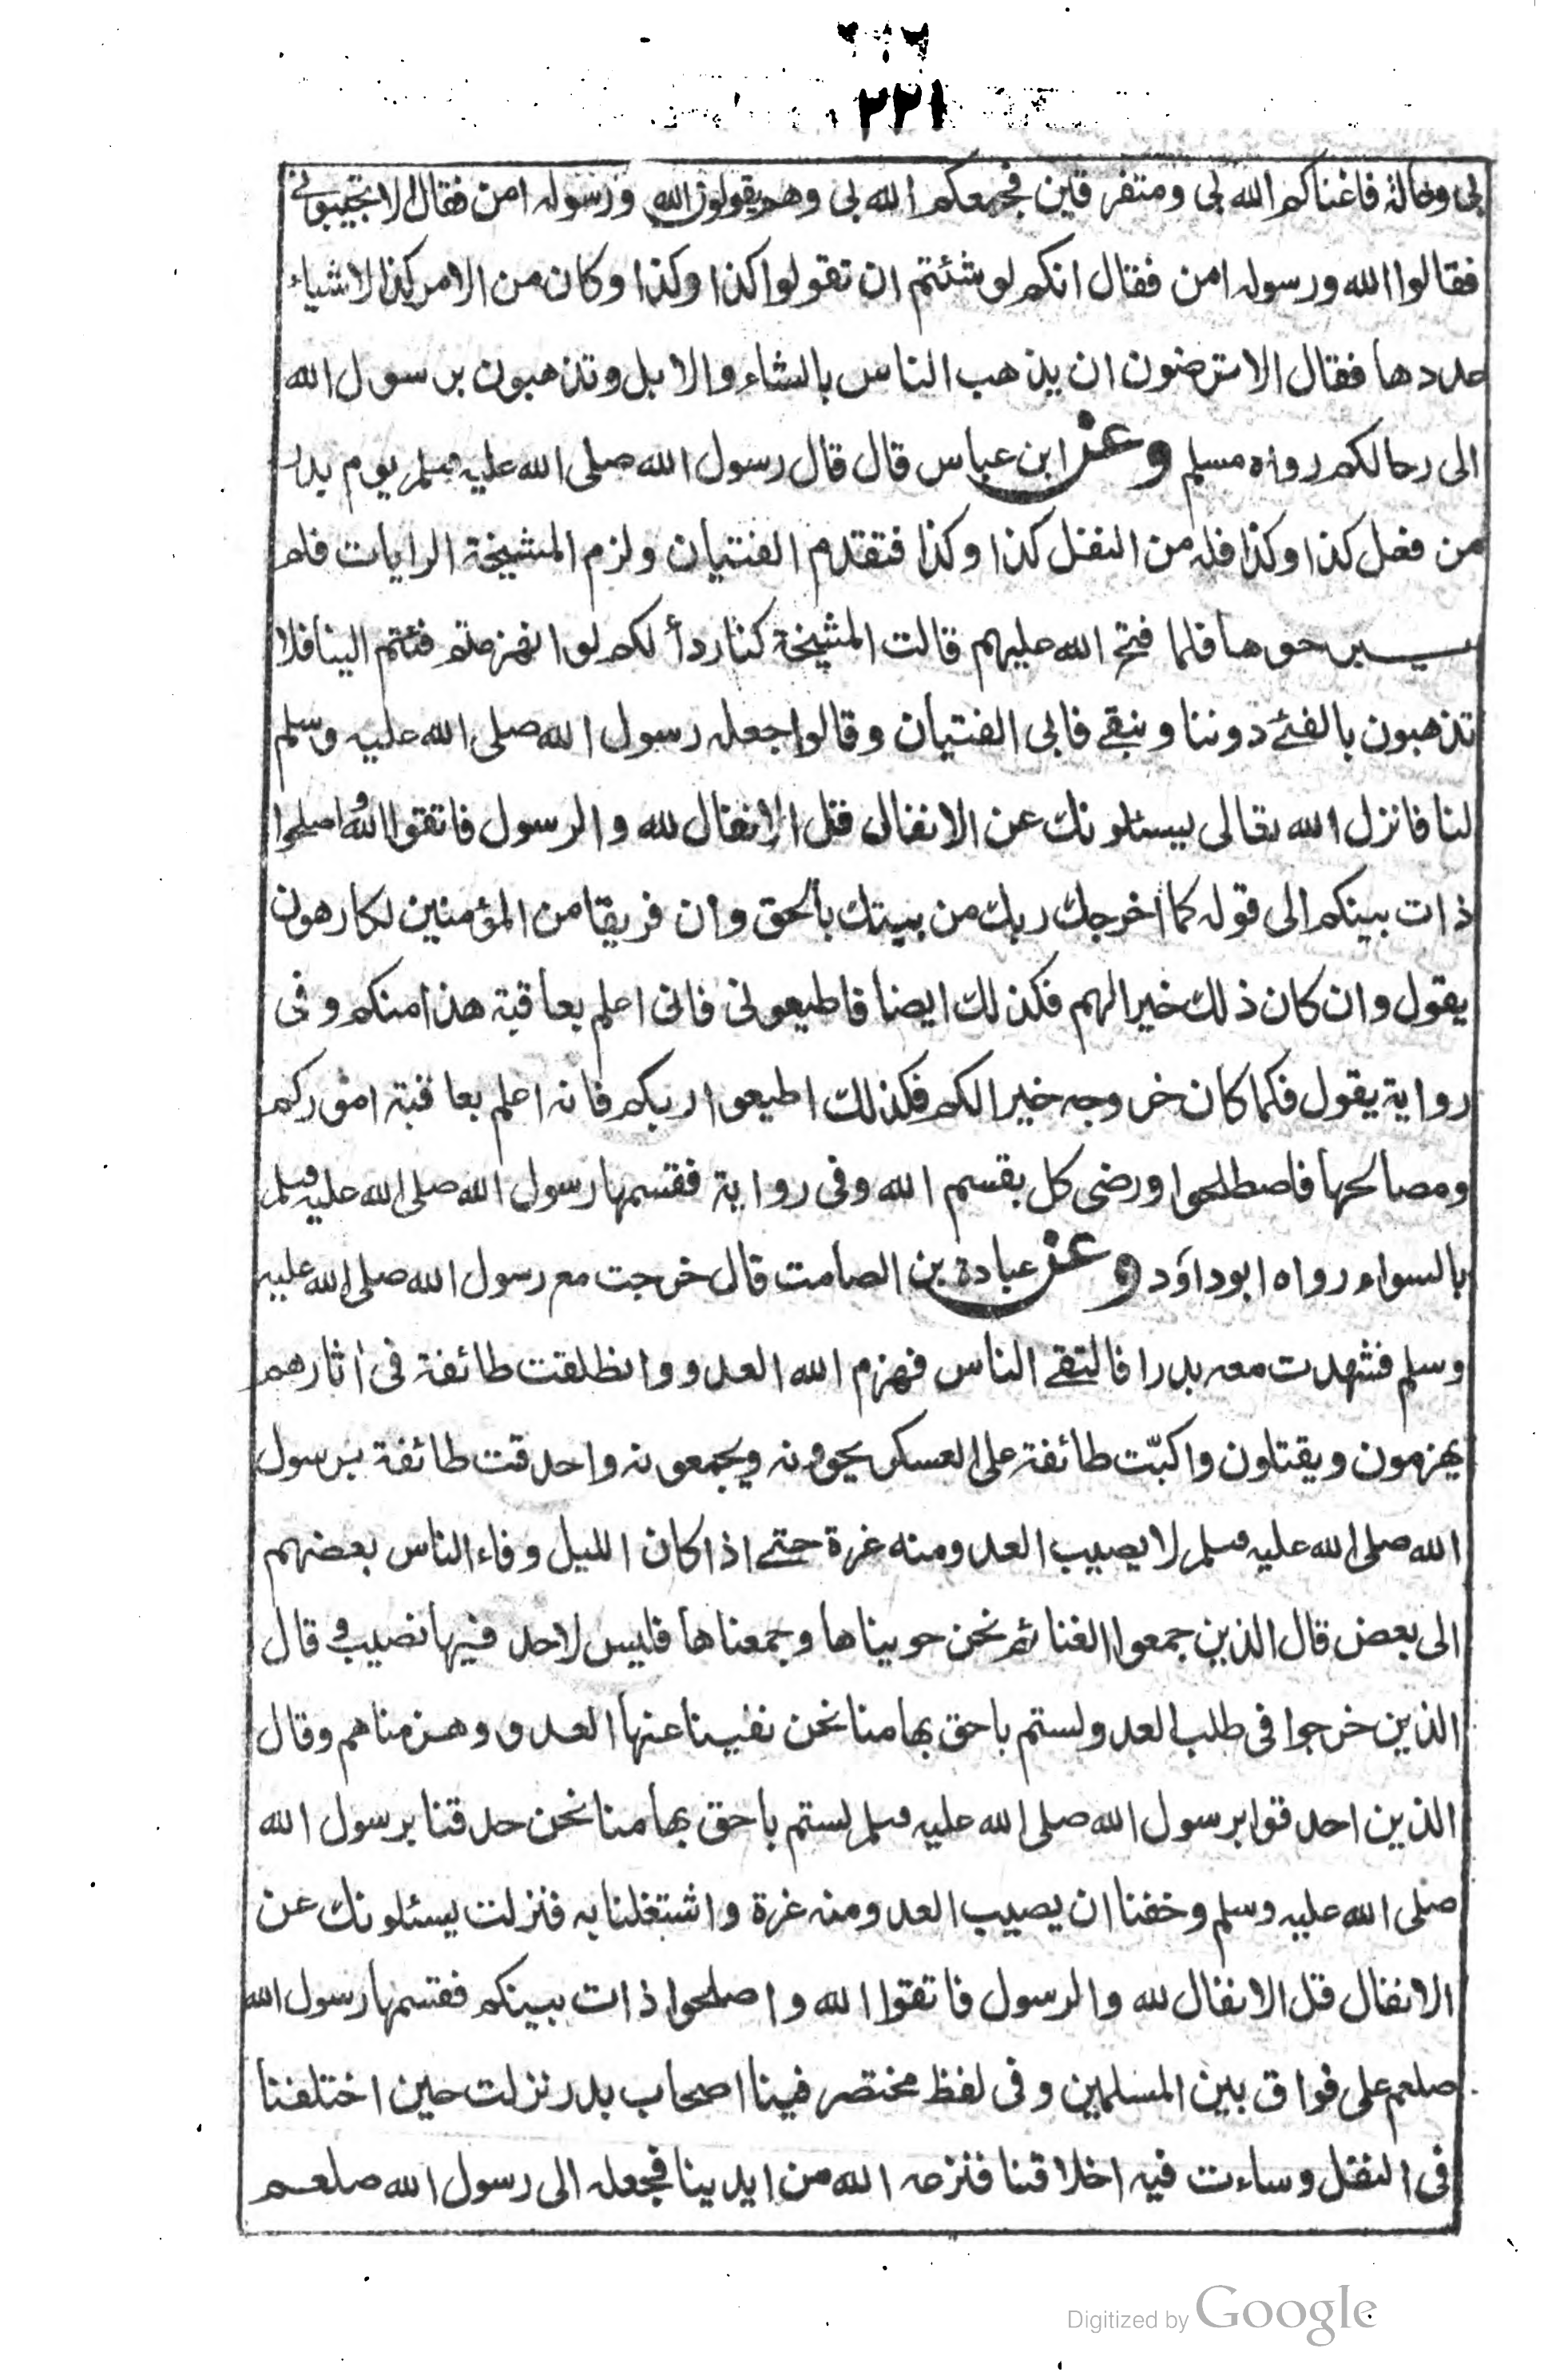 ٢٢١
بى وعالة فاغناكم الله بى ومتفرقين فجمعكم الله بى وهم يقولون الله ورسوله امن فقال الا تجيبونى
فقالوا الله ورسوله امن فقال انكم لو شئتم ان تقولوا كذا وكذا وكان من الامر كذا لاشياء
عددها فقال الا ترضون ان يذهب الناس بالشاء والابل وتذهبون برسول الله
الى رحالكم رواه مسلم وعن ابن عباس قال قال رسول الله صلى الله عليه وسلم يوم بدر
من فعل كذا وكذا فله من النفل كذا وكذا فتقدم الفتيان ولزم المشيخة الرايات فلم
يبرحوها فلما فتح الله عليهم قالت المشيخة كنا ردأ لكم لو انهزمتم فئتم الينا فلا
تذهبون بالفئ دوننا ونبقے فابى الفتيان وقالوا جعله رسول الله صلى الله عليه وسلم
لنا فانزل الله تعالى يسئلونك عن الانفال قل الانفال لله والرسول فاتقوا الله واصلحوا
ذات بينكم الى قوله كما اخرجك ربك من بيتك بالحق وان فريقا من المؤمنين لكارهون
يقول وان كان ذلك خيرا لهم فكذلك ايضا فاطيعونى فانى اعلم بعاقبة هذا منكم وفى
رواية يقول فكما كان خروجه خيرا لكم فكذلك اطيعوا ربكم فانه اعلم بعاقبة اموركم
ومصالحها فاصطلحوا ورضى كل بقسم الله وفى رواية فقسمها رسول الله صلى الله عليه وسلم
بالسواء رواه ابوداؤد وعن عبادة بن الصامت قال خرجت مع رسول الله صلى الله عليه
وسلم فشهدت معه بدرا فالتقے الناس فهزم الله العدو وانطلقت طائفة فى اثارهم
يهزمون ويقتلون واكبّت طائفة على العسكر يحوونه ويجمعونه واحدقت طائفة برسول
الله صلى الله عليه وسلم لا يصيب العدو منه غرة حتے اذا كان الليل وفاء الناس بعضهم
الى بعض قال الذين جمعوا الغنائم نحن حويناها وجمعناها فليس لاحد فيها نصيب وقال
الذين خرجوا فى طلب العدو لستم باحق بها منا نحن نفينا عنها العدو وهزمناهم وقال
الذين احدقوا برسول الله صلى الله عليه وسلم لستم باحق بها منا نحن حدقنا برسول الله
صلى الله عليه وسلم وخفنا ان يصيب العدو منه غرة واشتغلنا به فنزلت يسئلونك عن
الانفال قل الانفال لله والرسول فاتقوا الله واصلحوا ذات بينكم فقسمها رسول الله
صلعم على فواق بين المسلمين وفى لفظ مختصر فينا اصحاب بدر نزلت حين اختلفنا
فى النفل وساءت فيه اخلاقنا فنزعه الله من ايدينا فجعله الى رسول الله صلعم
Digitized by Google